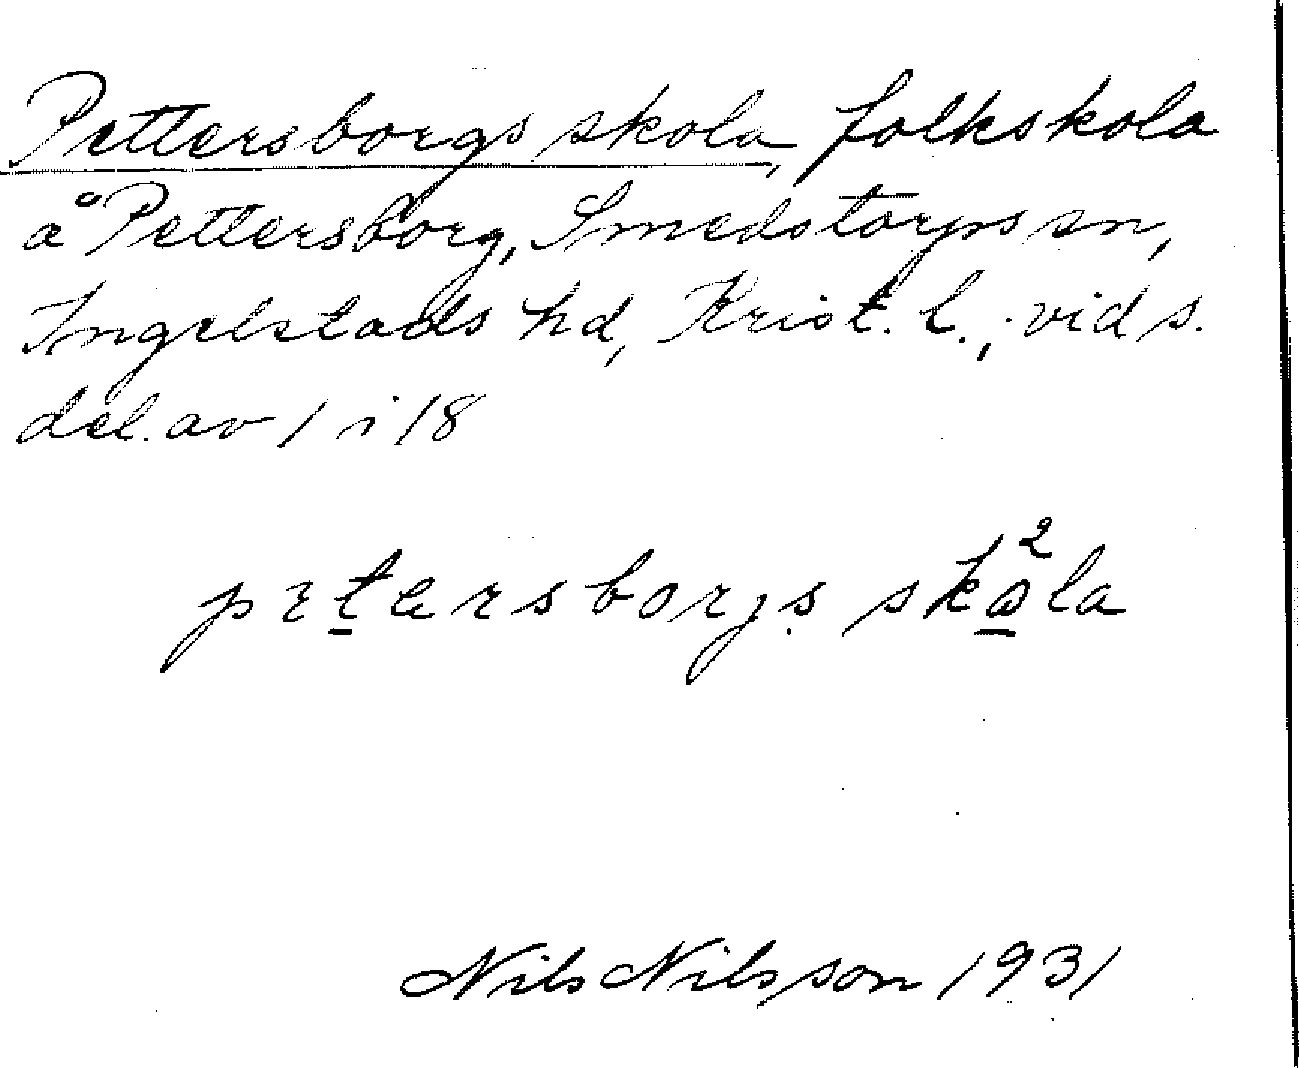 Pettersborgs skola, folkskola
å Pettersborg, Smedstorps sn,
Ingelstads hd, Krist. l., vid s.
del. av 1 i 18
skola
Nils Nilsson 1931